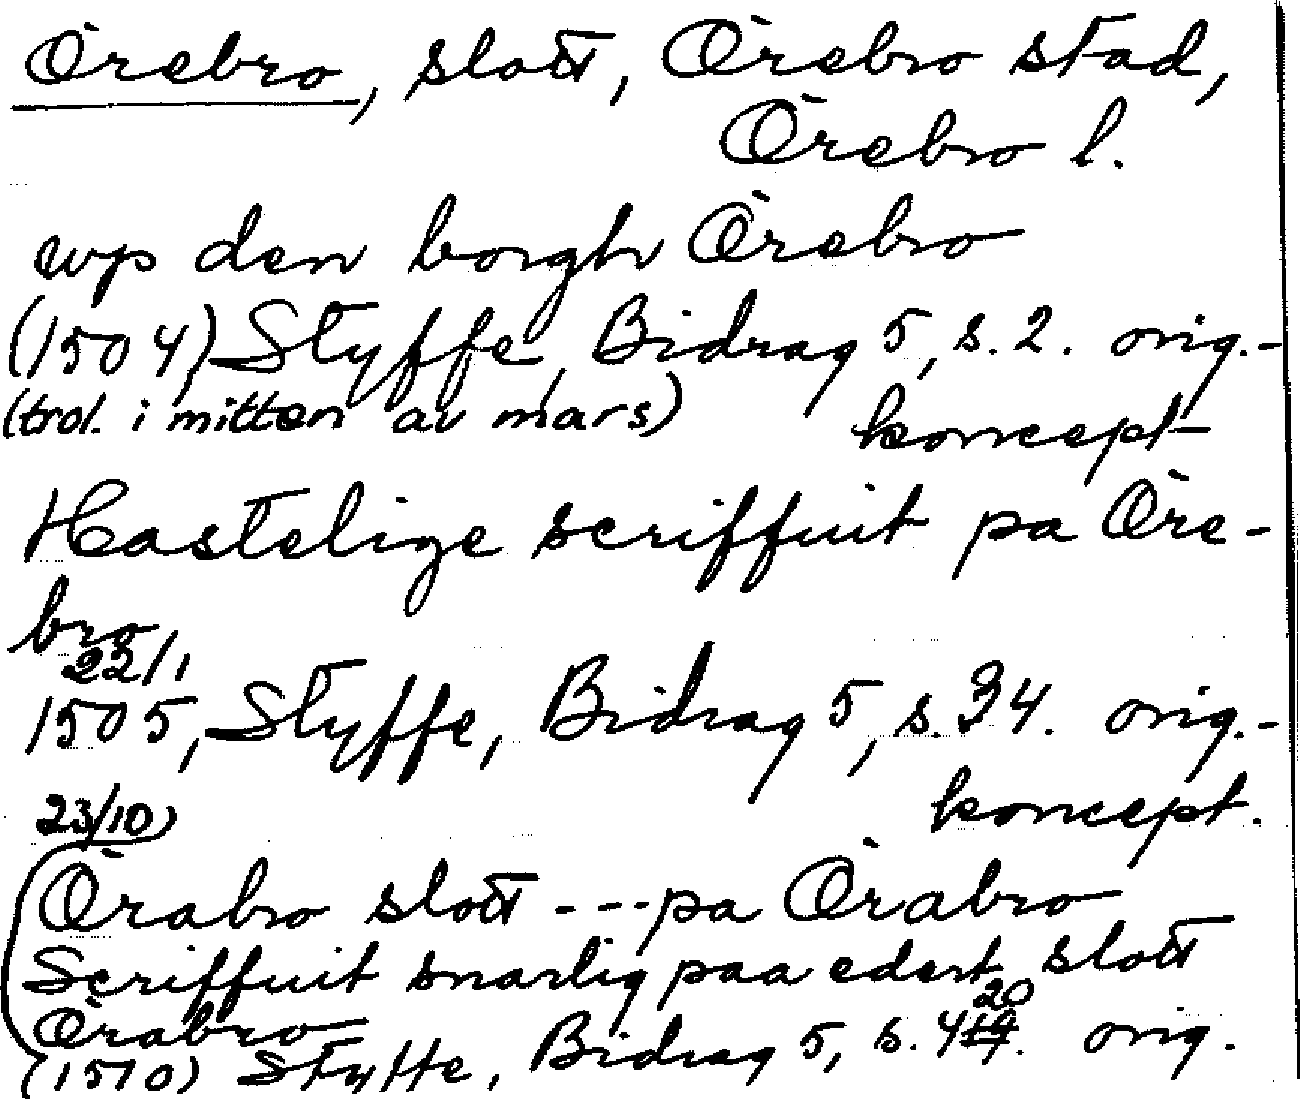 Örebro, slott, Örebro stad,
Örebro l.
wp den borgh Örebro
(1504) Styffe, Bidrag 5, s. 2. orig.-
(trol. i mitten av mars) koncept
Hastelige scriffuit pa Öre-
bro
22/1
1505, Styffe, Bidrag 5, s. 34. orig.-
koncept.
23/10)
(Örabro slott --- pa Örabro
Scriffuit snarlig paa edert slott
Örabro
(1510) Styffe, Bidrag 5, s. 420. orig.